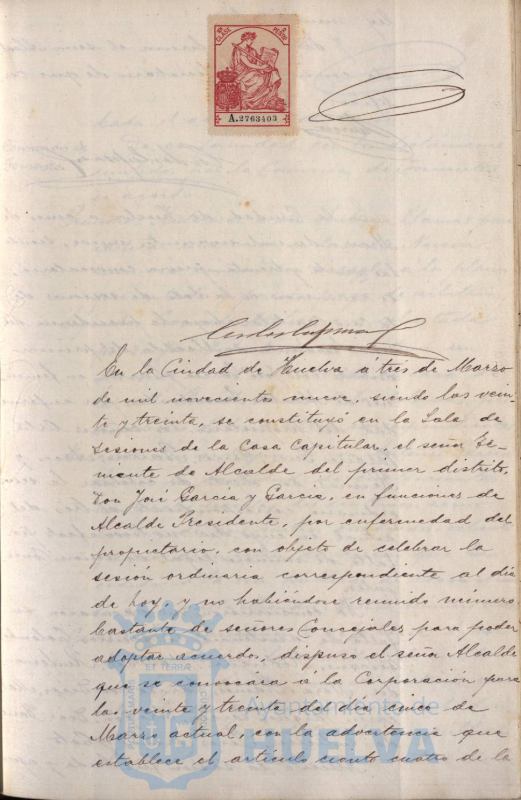 9ª CLASE
PESETA
A.2763403
En la Ciudad de Huelva á tres de Marzo
de mil novecientos nueve, siendo las vein-
te y treinta, se constituyó en la Sala de
Sesiones de la Casa Capitular, el señor Te-
niente de Alcalde del primer distrito,
Don José García y García, en funciones de
Alcalde Presidente, por enfermedad del
propietario, con objeto de celebrar la
sesión ordinaria correspondiente al día
de hoy, y no habiéndose reunido número
bastante de señores Concejales para poder
adoptar acuerdos, dispuso el señor Alcalde
que se convocara á la Corporación para
las veinte y treinta del día cinco de
Marzo actual, con la advertencia que
establece el artículo ciento cuatro de la
Ayuntamiento de
HUELVA